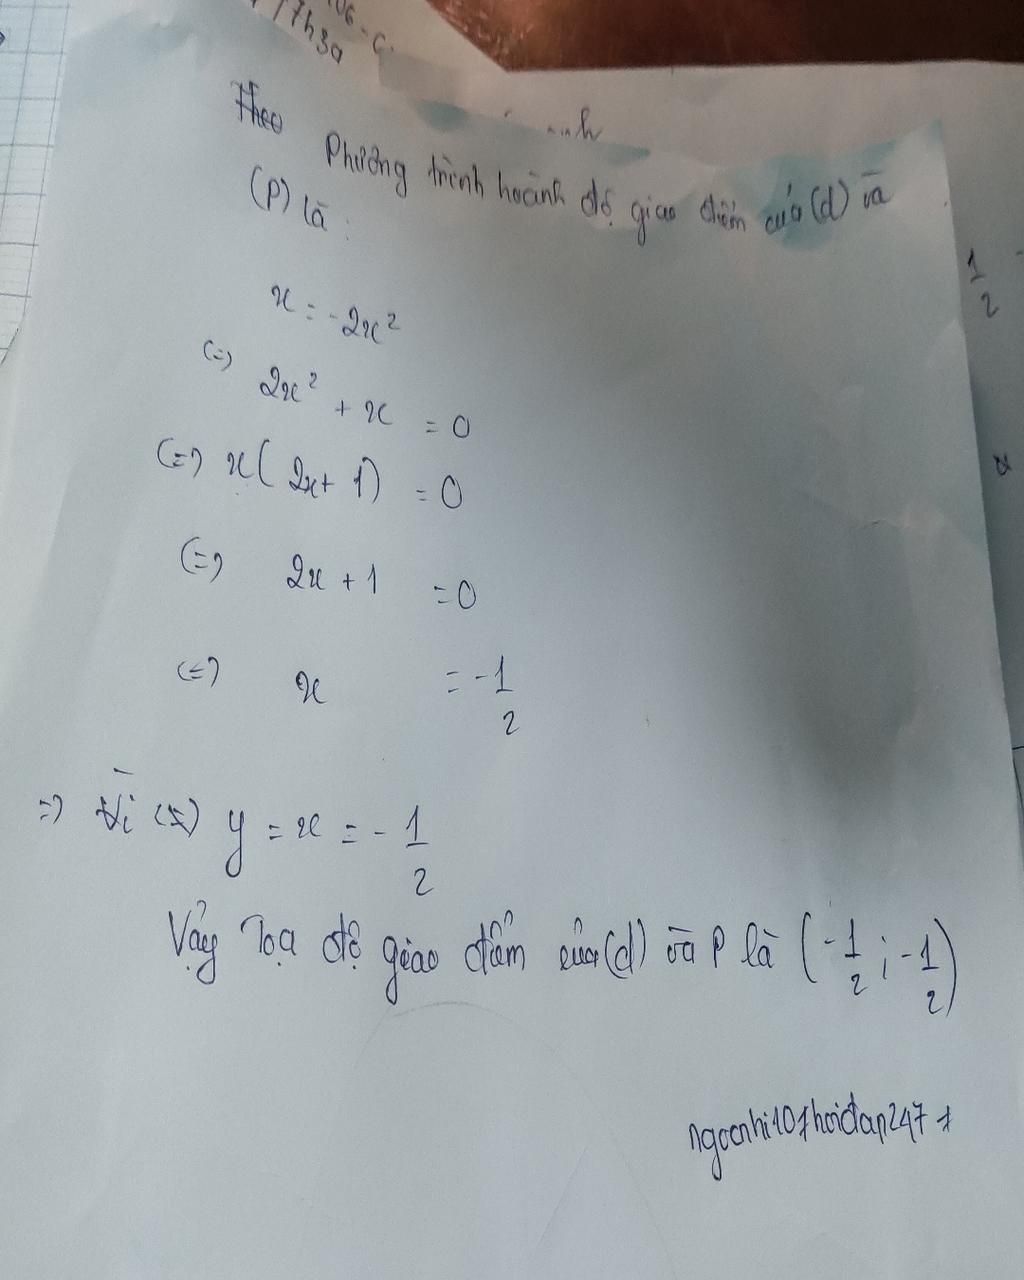 17h30
Theo Phương trình hoành độ giao điểm của (d) và
(P) là:
x = -2x²
(=) 2x² + x = 0
(=) x(2x+1) = 0
(=) 2x + 1 = 0
(=) x = -1/2
=) Vì (x) y = x = -1/2
Vậy Toạ độ giao điểm của (d) và P là (-1/2; -1/2)
1/2
x